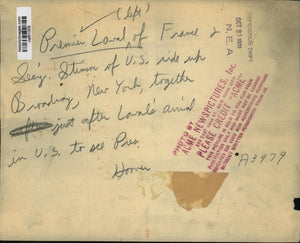 (left)
Premier Laval of France &
Sec'y. Stimson of U.S. ride up
Broadway, New York, together
just after Lavals arrival
in U.S. to see Pres.
Hoover
REFERENCE DEPT.
OCT 27 1931
N.E.A.
PHOTO BY
ACME NEWSPICTURES, Inc.
PLEASE CREDIT "ACME"
A3979